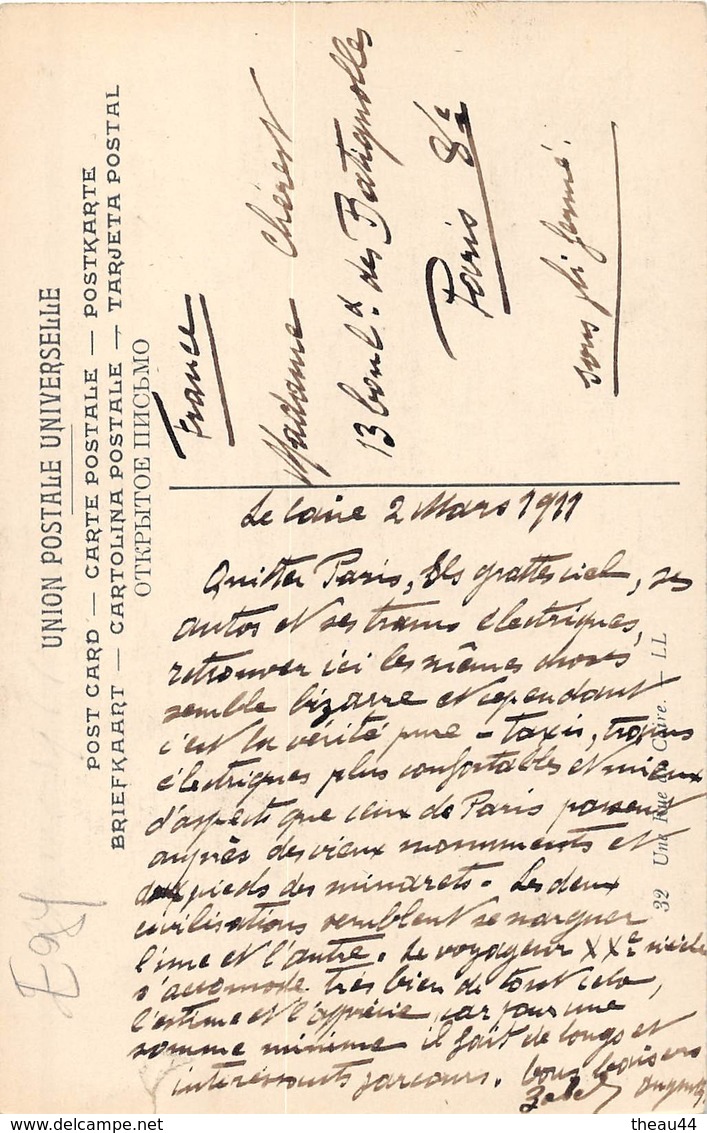 UNION POSTALE UNIVERSELLE
POST CARD — CARTE POSTALE — POSTKARTE
BRIEFKAART — CARTOLINA POSTALE — TARJETA POSTAL
ОТКРЫТОЕ ПИСЬМО
France
Madame Chérest
13 boul.d des Batignolles
Paris 8e
sous pli fermé.
Le Caire 2 Mars 1911
Quitter Paris, ses grattes ciel, ses
autos et ses trams électriques,
retrouver ici les mêmes choses
semble bizarre et cependant
c'est la vérité pure - taxis, trams
électriques plus confortables et mieux
d'aspects que ceux de Paris passent
auprès des vieux monuments et
aux pieds des minarets. Les deux
civilisations semblent se narguer
l'une et l'autre. Le voyageur XXe siècle
s'accomode très bien de tout cela,
l'estime et l'apprécie car pour une
somme minime il fait de longs et
intéressants parcours. bons baisers
32 Une Rue du Caire. — LL
Egy
theau44